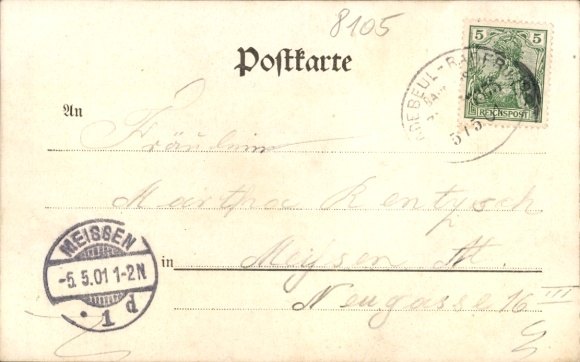 8105
Postkarte
5 5
REICHSPOST
An
Fräulein
Martha Rentzsch
in Meissen
Neugasse 16 III
MEISSEN
-5.5.01 1-2N
1 d